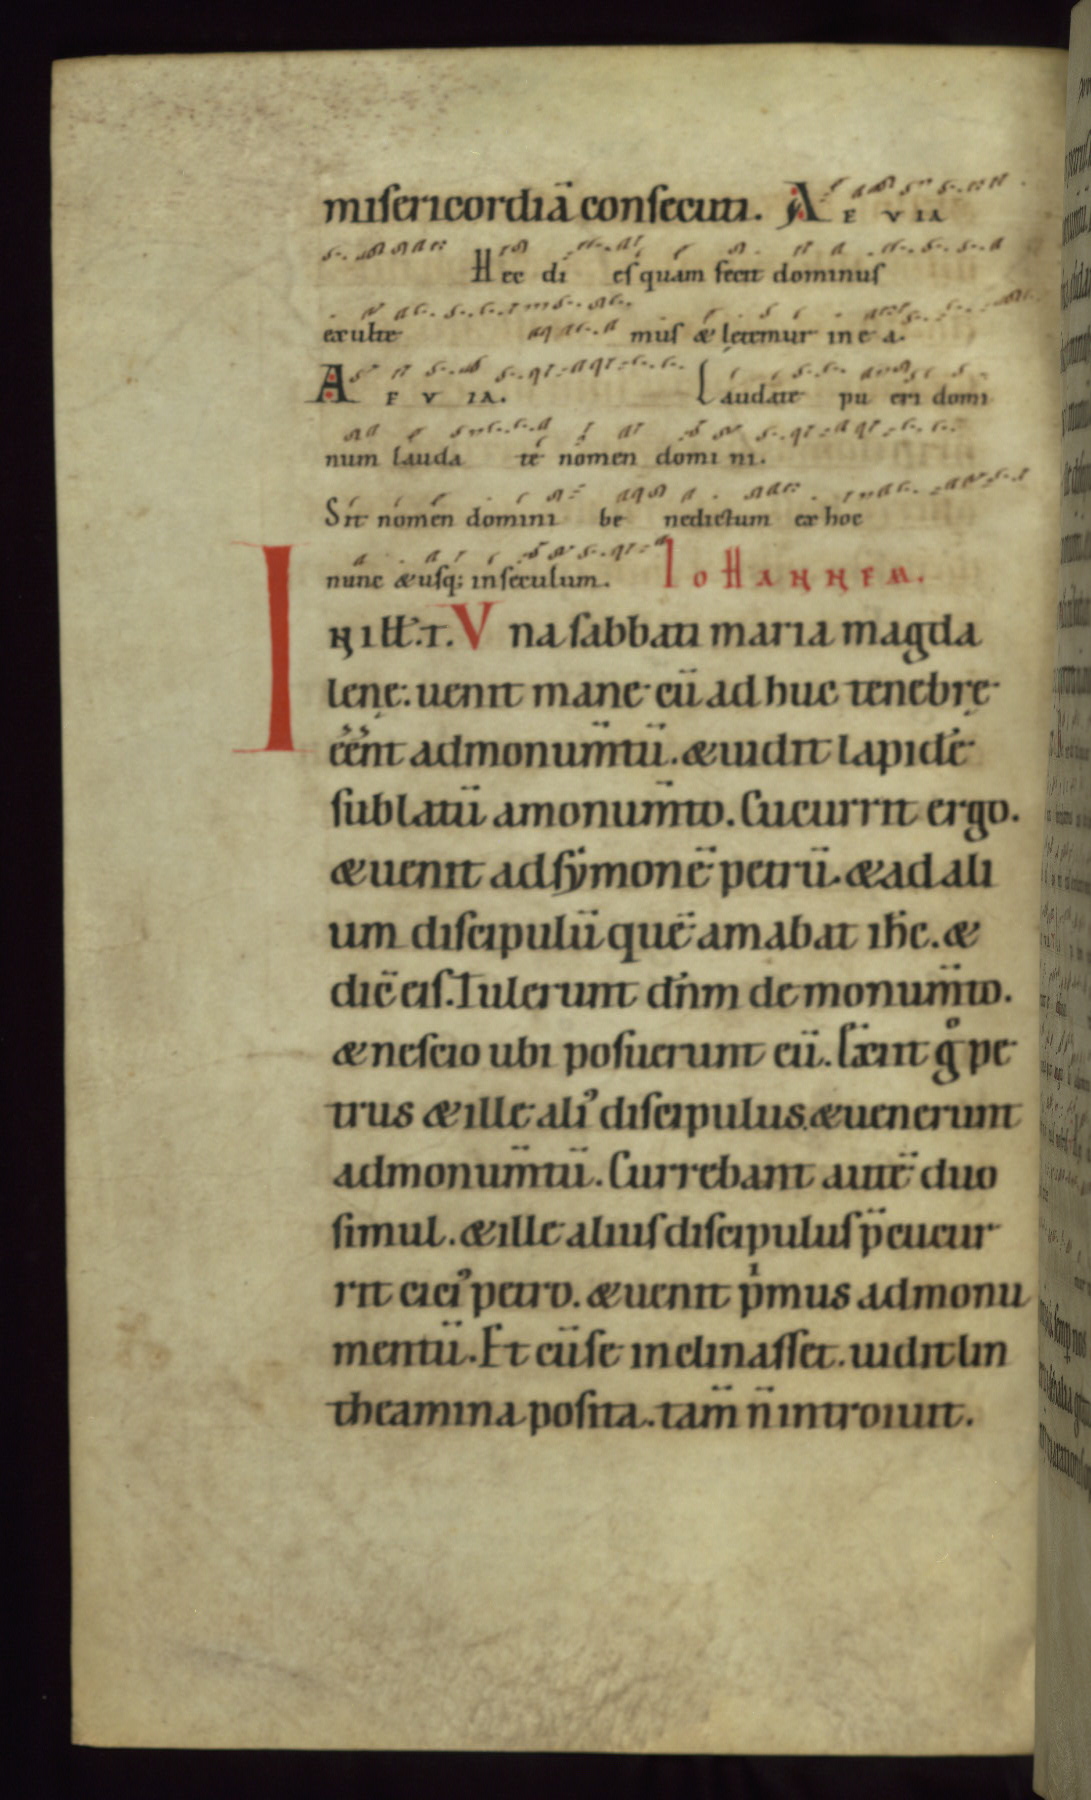 misericordiā consecuti. A E V IA
Hec di es quam fecit dominus
exulte mus & letemur in e a.
A E V IA. Laudate pu eri domi
num lauda te nomen domi ni.
Sit nomen domini be nedictum ex hoc
nunc & usq; in seculum. IOHANNEM.
IN ILL̄. T. Una sabbati maria magda
lenę. uenit mane cū ad huc tenebrę
eēnt ad monum̄tū. & uidit lapidē
sublatū a monum̄to. Cucurrit ergo.
& uenit ad symonē petrū. & ad ali
um discipulū quē amabat ih̄c. &
dic̄ eis. Tulerunt dn̄m de monum̄to.
& nescio ubi posuerunt eū. Exiit gͦ pe
trus & ille aliꝰ discipulus. & uenerunt
ad monum̄tū. Currebant autē duo
simul. & ille alius discipulus p̄cucur
rit citiꝰ petro. & uenit pͥmus ad monu
mentū. Et cū se inclinasset. uidit lin
theamina posita. tam̄ n̄ introiuit.